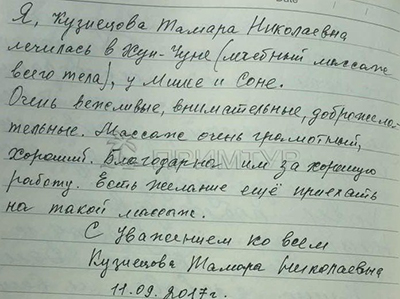 Я, Кузнецова Тамара Николаевна
лечилась в Хун-Чуне (лечебный массаж
всего тела), у Мише и Соне.
Очень вежливые, внимательные, доброжела-
тельные. Массаж очень грамотный,
хороший. Благодарна им за хорошую
работу. Есть желание ещё приехать
на такой массаж.
С уважением ко всем
Кузнецова Тамара Николаевна
11.09.2017г.
ПРИМТУР